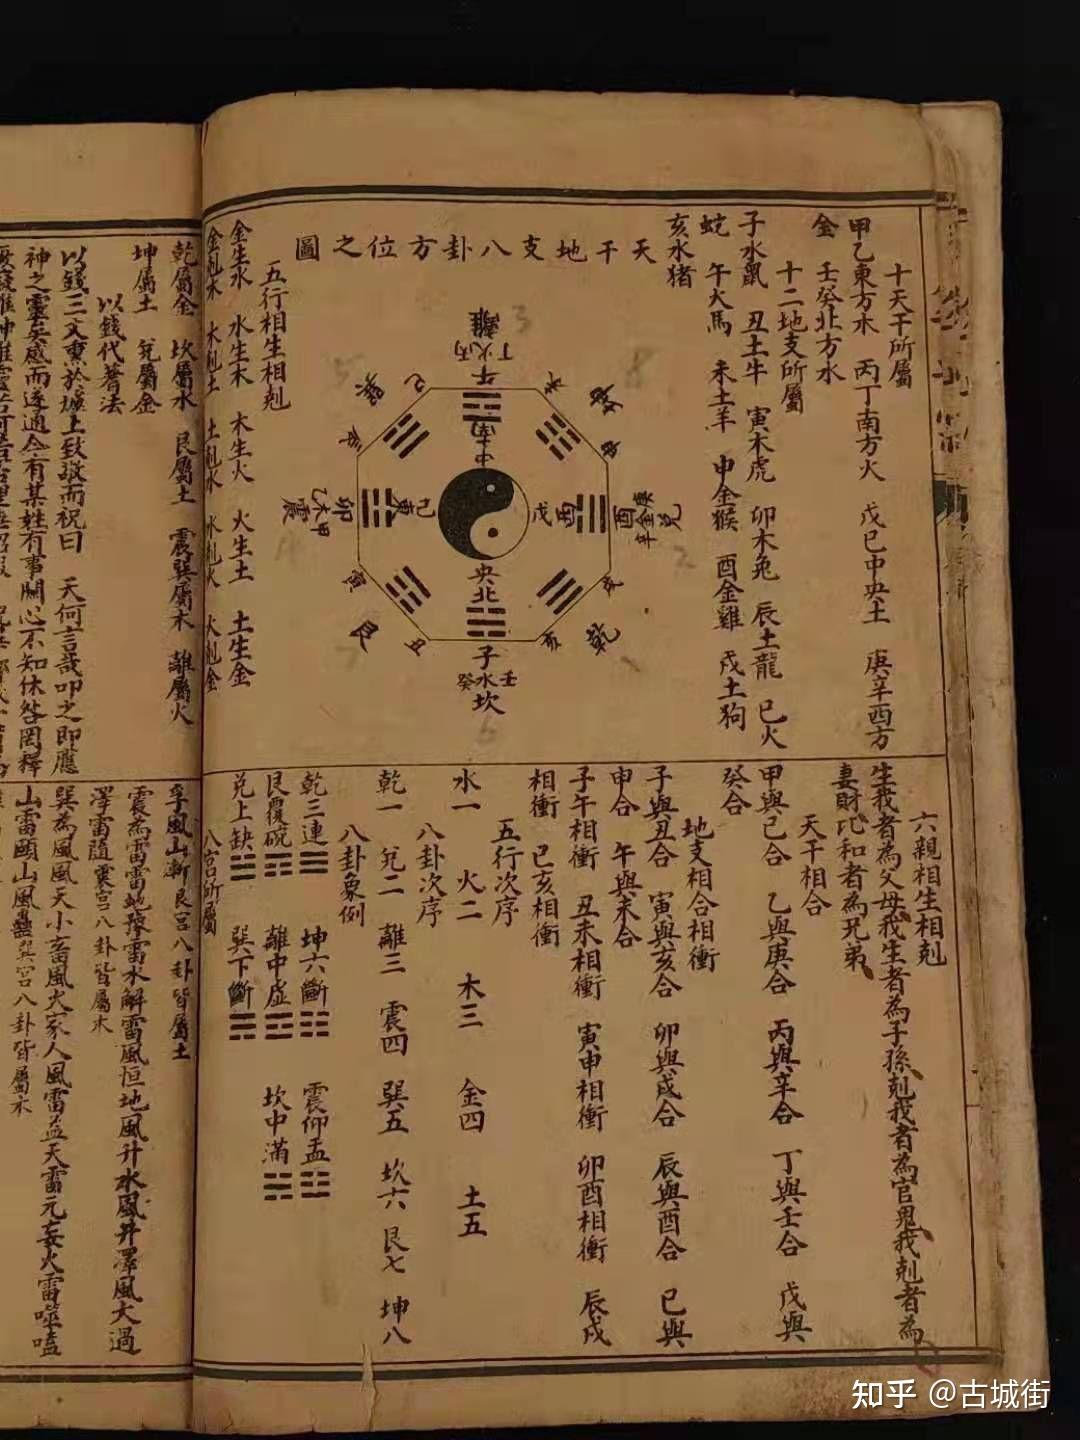 十天干所屬
甲乙東方木　丙丁南方火　戊己中央土　庚辛西方
金　壬癸北方水
十二地支所屬
子水鼠　丑土牛　寅木虎　卯木兔　辰土龍　巳火
蛇　午火馬　未土羊　申金猴　酉金雞　戌土狗
亥水猪
天干地支八卦方位之圖
離
丁火丙
午
南
中
巽
巳
未
坤
申
卯
乙木震甲
東
己
戊
酉
酉
庚金辛
兌
寅
艮
丑
央
北
子
癸水壬
坎
亥
乾
戌
五行相生相剋
金生水　水生木　木生火　火生土　土生金
金剋木　木剋土　土剋水　水剋火　火剋金
六親相生相剋
生我者為父母我生者為子孫剋我者為官鬼我剋者為
妻財比和者為兄弟
天干相合
甲與己合　乙與庚合　丙與辛合　丁與壬合　戊與
癸合
地支相合相衝
子與丑合　寅與亥合　卯與戌合　辰與酉合　巳與
申合　午與未合
子午相衝　丑未相衝　寅申相衝　卯酉相衝　辰戌
相衝　巳亥相衝
五行次序
水一　火二　木三　金四　土五
八卦次序
乾一　兌二　離三　震四　巽五　坎六　艮七　坤八
八卦象例
乾三連☰　坤六斷☷　震仰盂☳
艮覆碗☶　離中虛☲　坎中滿☵
兌上缺☱　巽下斷☴
八宮所屬
乾屬金　坎屬水　艮屬土　震巽屬木　離屬火
坤屬土　兌屬金
以錢代蓍法
以錢三文熏於爐上致敬而祝曰　天何言哉叩之即應
神之靈矣感而遂通今有某姓有事關心不知休咎罔釋
孚風山漸艮宮八卦皆屬土
震為雷雷地豫雷水解雷風恒地風升水風井澤風大過
澤雷隨震宮八卦皆屬木
巽為風風天小畜風火家人風雷益天雷无妄火雷噬嗑
山雷頤山風蠱巽宮八卦皆屬木
知乎 @古城街